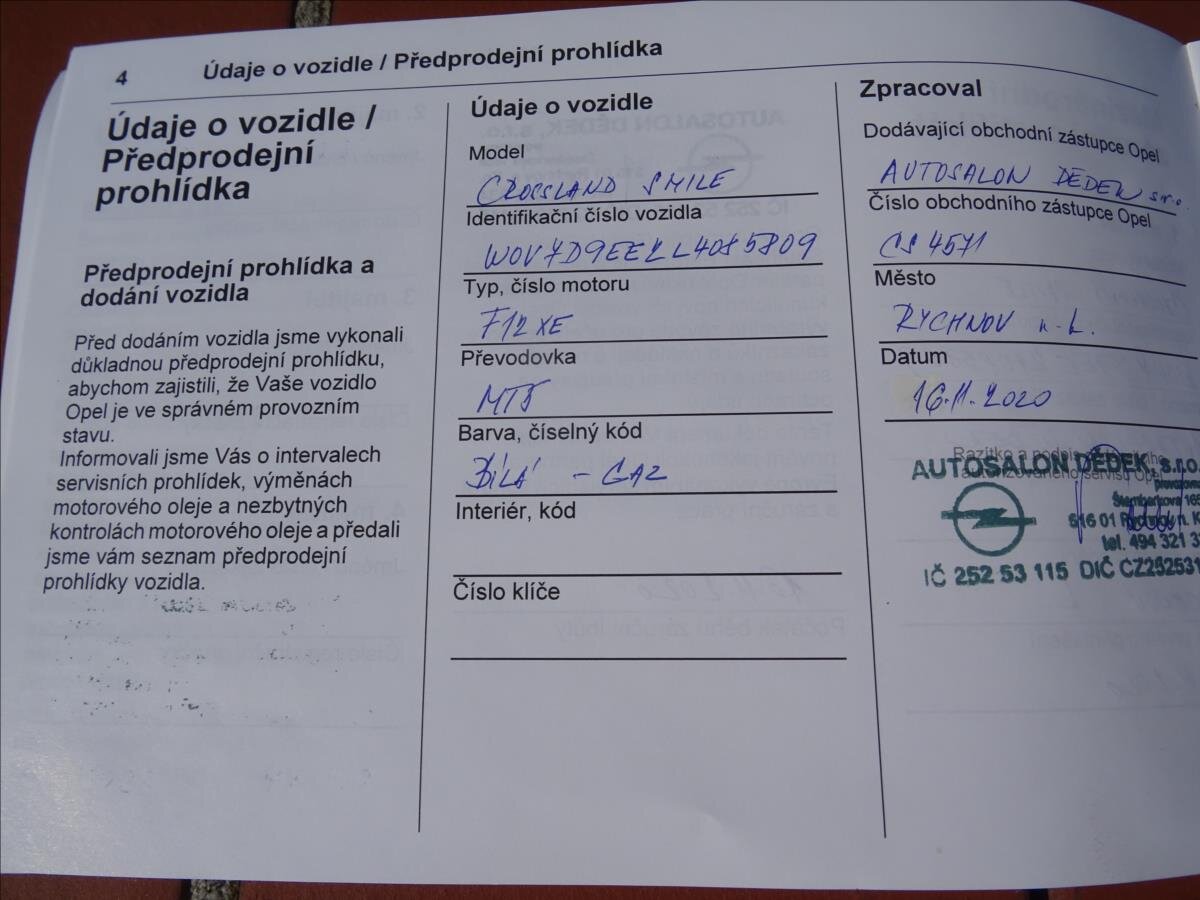 4
Údaje o vozidle / Předprodejní prohlídka
Údaje o vozidle /
Předprodejní
prohlídka
Předprodejní prohlídka a
dodání vozidla
Před dodáním vozidla jsme vykonali
důkladnou předprodejní prohlídku,
abychom zajistili, že Vaše vozidlo
Opel je ve správném provozním
stavu.
Informovali jsme Vás o intervalech
servisních prohlídek, výměnách
motorového oleje a nezbytných
kontrolách motorového oleje a předali
jsme vám seznam předprodejní
prohlídky vozidla.
Údaje o vozidle
Model
CROSSLAND SMILE
Identifikační číslo vozidla
W0V7D9EEKL4085809
Typ, číslo motoru
F12XE
Převodovka
MT5
Barva, číselný kód
BÍLÁ - GAZ
Interiér, kód
Číslo klíče
Zpracoval
Dodávající obchodní zástupce Opel
AUTOSALON DĚDEK s.r.o.
Číslo obchodního zástupce Opel
CS 4571
Město
RYCHNOV n. K.
Datum
16.11.2020
Razítko a podpis
autorizovaného servisu Opel
AUTOSALON DĚDEK, s.r.o.
516 01 Rychnov n. K
tel. 494 321 3
IČ 252 53 115 DIČ CZ252531